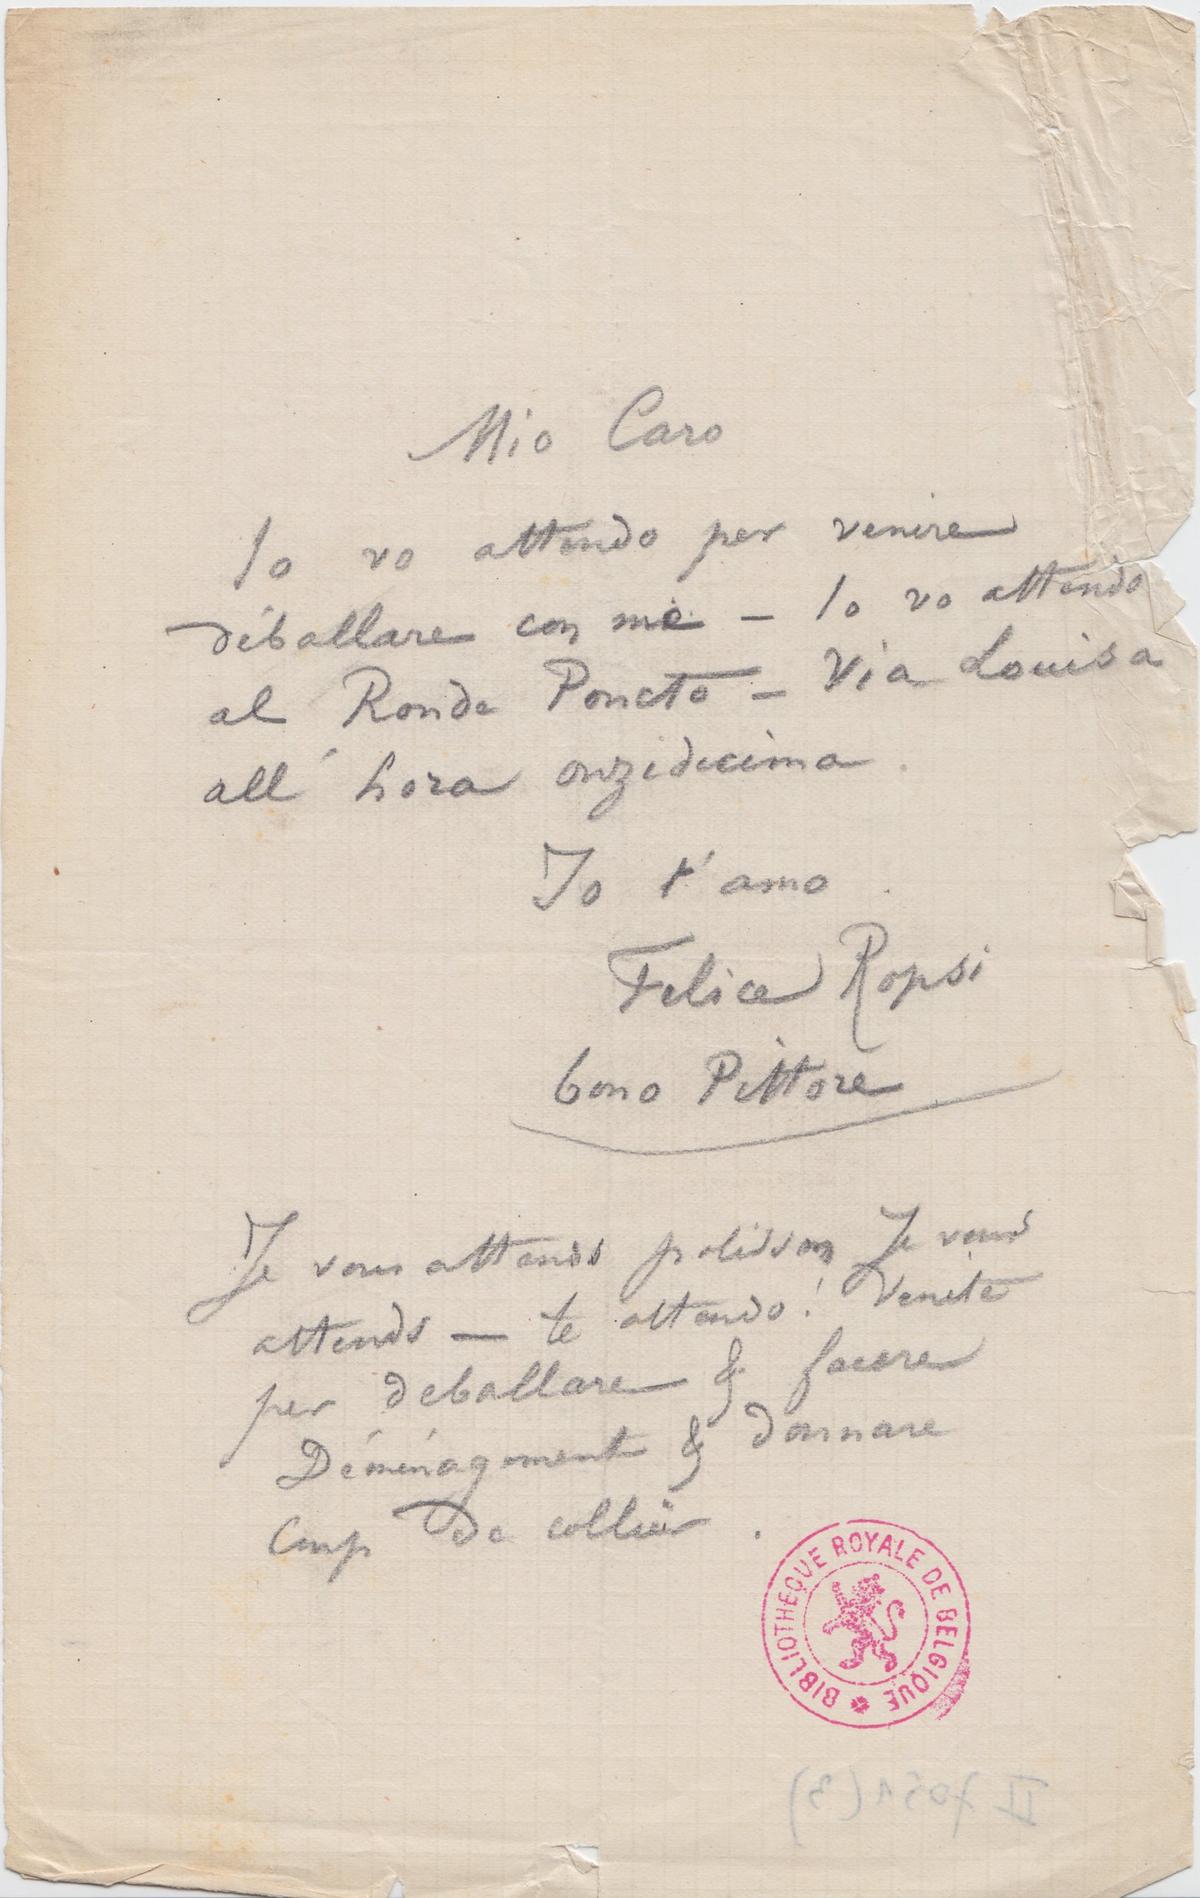 Mio Caro
Io vo attendo per venire
déballare con me – Io vo attendo
al Ronde Poncto – Via Louisa
all' hora onzidecima.
Io t'amo.
Felice Ropsi
bono Pittore
Je vous attends polisson Je vous
attends — te attendo! Venite
per deballare & facere
Déménagement & donnare
Coup de collier.
BIBLIOTHÈQUE ROYALE DE BELGIQUE
II 7051 (3)